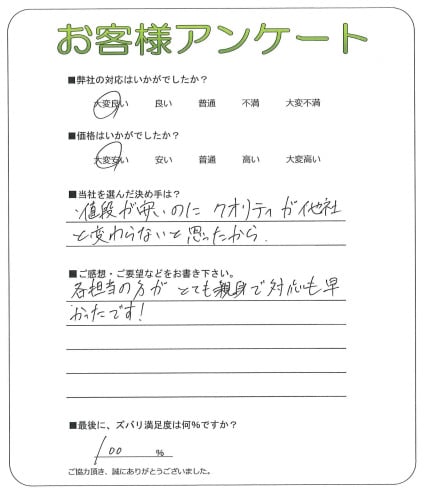 お客様アンケート
■弊社の対応はいかがでしたか?
大変良い 良い 普通 不満 大変不満
■価格はいかがでしたか?
大変安い 安い 普通 高い 大変高い
■当社を選んだ決め手は?
・値段が安いのに クオリティが他社
と変わらないと思ったから.
■ご感想・ご要望などをお書き下さい。
各担当の方が とても親身で対応も早
かったです!
■最後に、ズバリ満足度は何%ですか?
100 %
ご協力頂き、誠にありがとうございました。